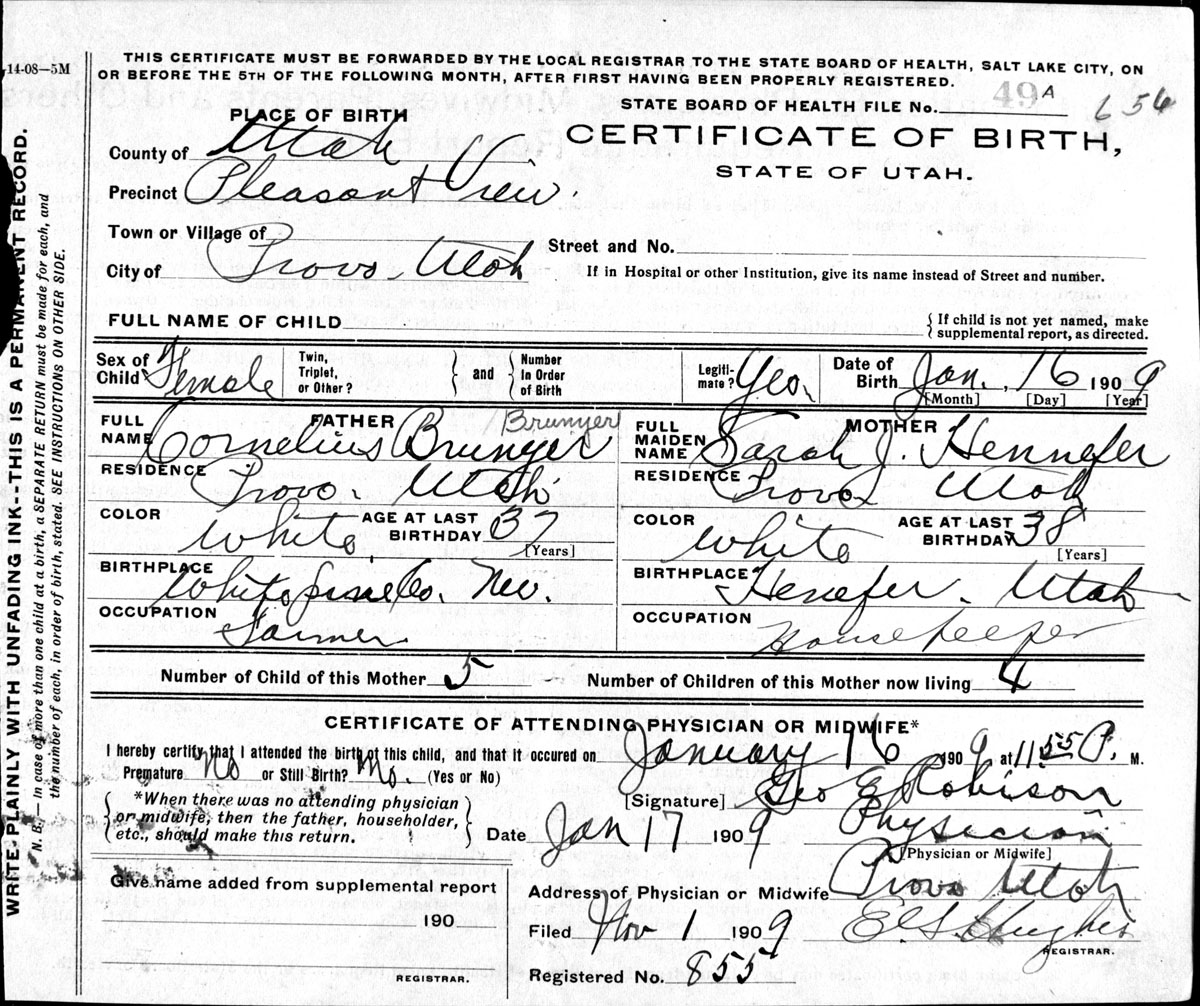 14-08—5M
THIS CERTIFICATE MUST BE FORWARDED BY THE LOCAL REGISTRAR TO THE STATE BOARD OF HEALTH, SALT LAKE CITY, ON
OR BEFORE THE 5TH OF THE FOLLOWING MONTH, AFTER FIRST HAVING BEEN PROPERLY REGISTERED.
STATE BOARD OF HEALTH FILE No. 49A 656
PLACE OF BIRTH
CERTIFICATE OF BIRTH,
STATE OF UTAH.
County of Utah
Precinct Pleasant View.
Town or Village of
Street and No.
City of Provo Utah
If in Hospital or other Institution, give its name instead of Street and number.
FULL NAME OF CHILD
{If child is not yet named, make
supplemental report, as directed.
Sex of Child Female
Twin, Triplet, or Other?
} and {
Number In Order of Birth
Legiti-mate? Yes.
Date of Birth Jan. 16 1909
[Month] [Day] [Year]
FATHER
FULL NAME Cornelius Brunyer Brunyer
RESIDENCE Provo. Utah
COLOR White
AGE AT LAST BIRTHDAY 37
[Years]
BIRTHPLACE White pine Co. Nev.
OCCUPATION Farmer
MOTHER
FULL MAIDEN NAME Sarah J. Hennefer
RESIDENCE Provo Utah
COLOR White
AGE AT LAST BIRTHDAY 38
[Years]
BIRTHPLACE Henefer. Utah
OCCUPATION Housekeeper
Number of Child of this Mother 5
Number of Children of this Mother now living 4
CERTIFICATE OF ATTENDING PHYSICIAN OR MIDWIFE*
I hereby certify that I attended the birth of this child, and that it occured on January 16 1909 at 11.55 P. M.
Premature No or Still Birth? No. (Yes or No)
[Signature] Geo E Robison
{*When there was no attending physician
or midwife, then the father, householder,
etc., should make this return.}
Date Jan 17 1909
Physician
[Physician or Midwife]
Give name added from supplemental report
190
REGISTRAR.
Address of Physician or Midwife Provo Utah
Filed Nov 1 1909
Hughes
REGISTRAR.
Registered No. 855
WRITE PLAINLY WITH UNFADING INK--THIS IS A PERMANENT RECORD.
N. B.— in case of more than one child at a birth, a SEPARATE RETURN must be made for each, and
the number of each, in order of birth, stated. SEE INSTRUCTIONS ON OTHER SIDE.